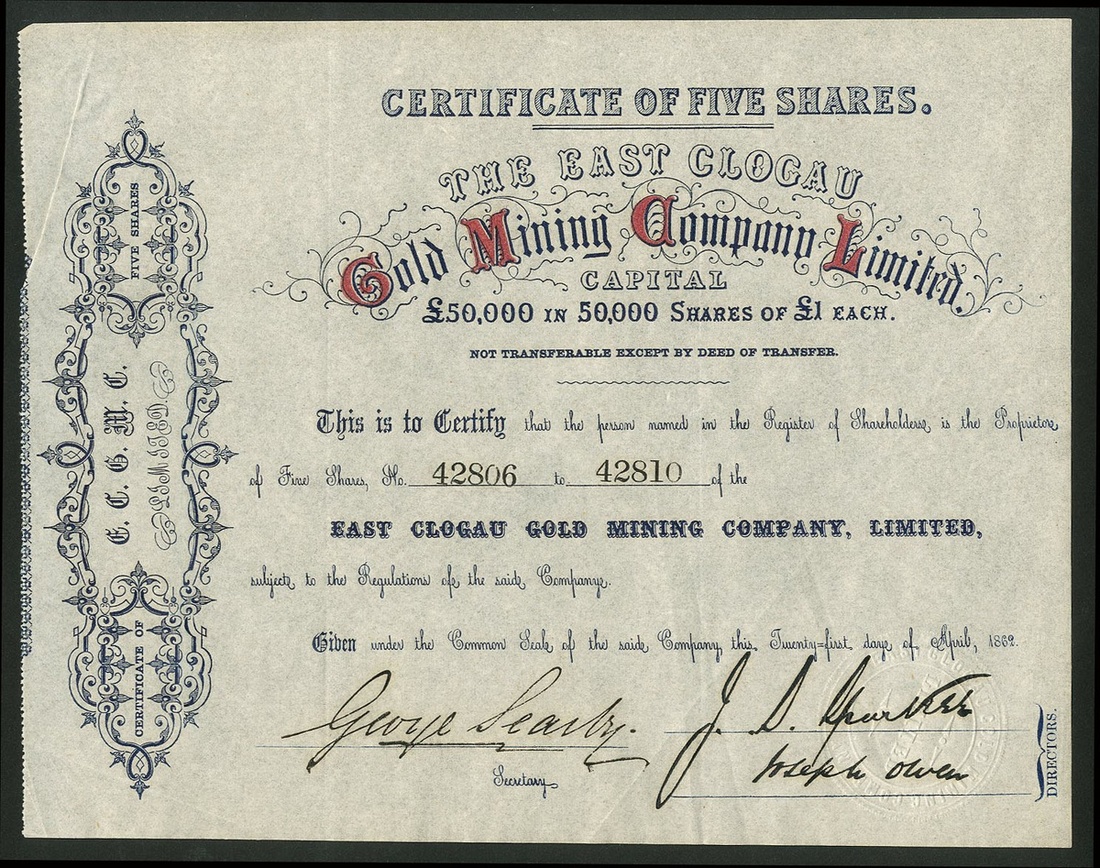 CERTIFICATE OF FIVE SHARES.
THE EAST CLOGAU
Gold Mining Company Limited.
CAPITAL
£50,000 IN 50,000 SHARES OF £1 EACH.
NOT TRANSFERABLE EXCEPT BY DEED OF TRANSFER.
This is to Certify that the person named in the Register of Shareholders is the Proprietor
of Five Shares, No. 42806 to 42810 of the
EAST CLOGAU GOLD MINING COMPANY, LIMITED,
subject to the Regulations of the said Company.
Given under the Common Seal of the said Company, this Twenty=first day of April, 1862.
George Searby.
J. D.
Joseph Owen
Secretary
DIRECTORS.
CERTIFICATE OF
FIVE SHARES
E. C. G. M. C.
LIMITED